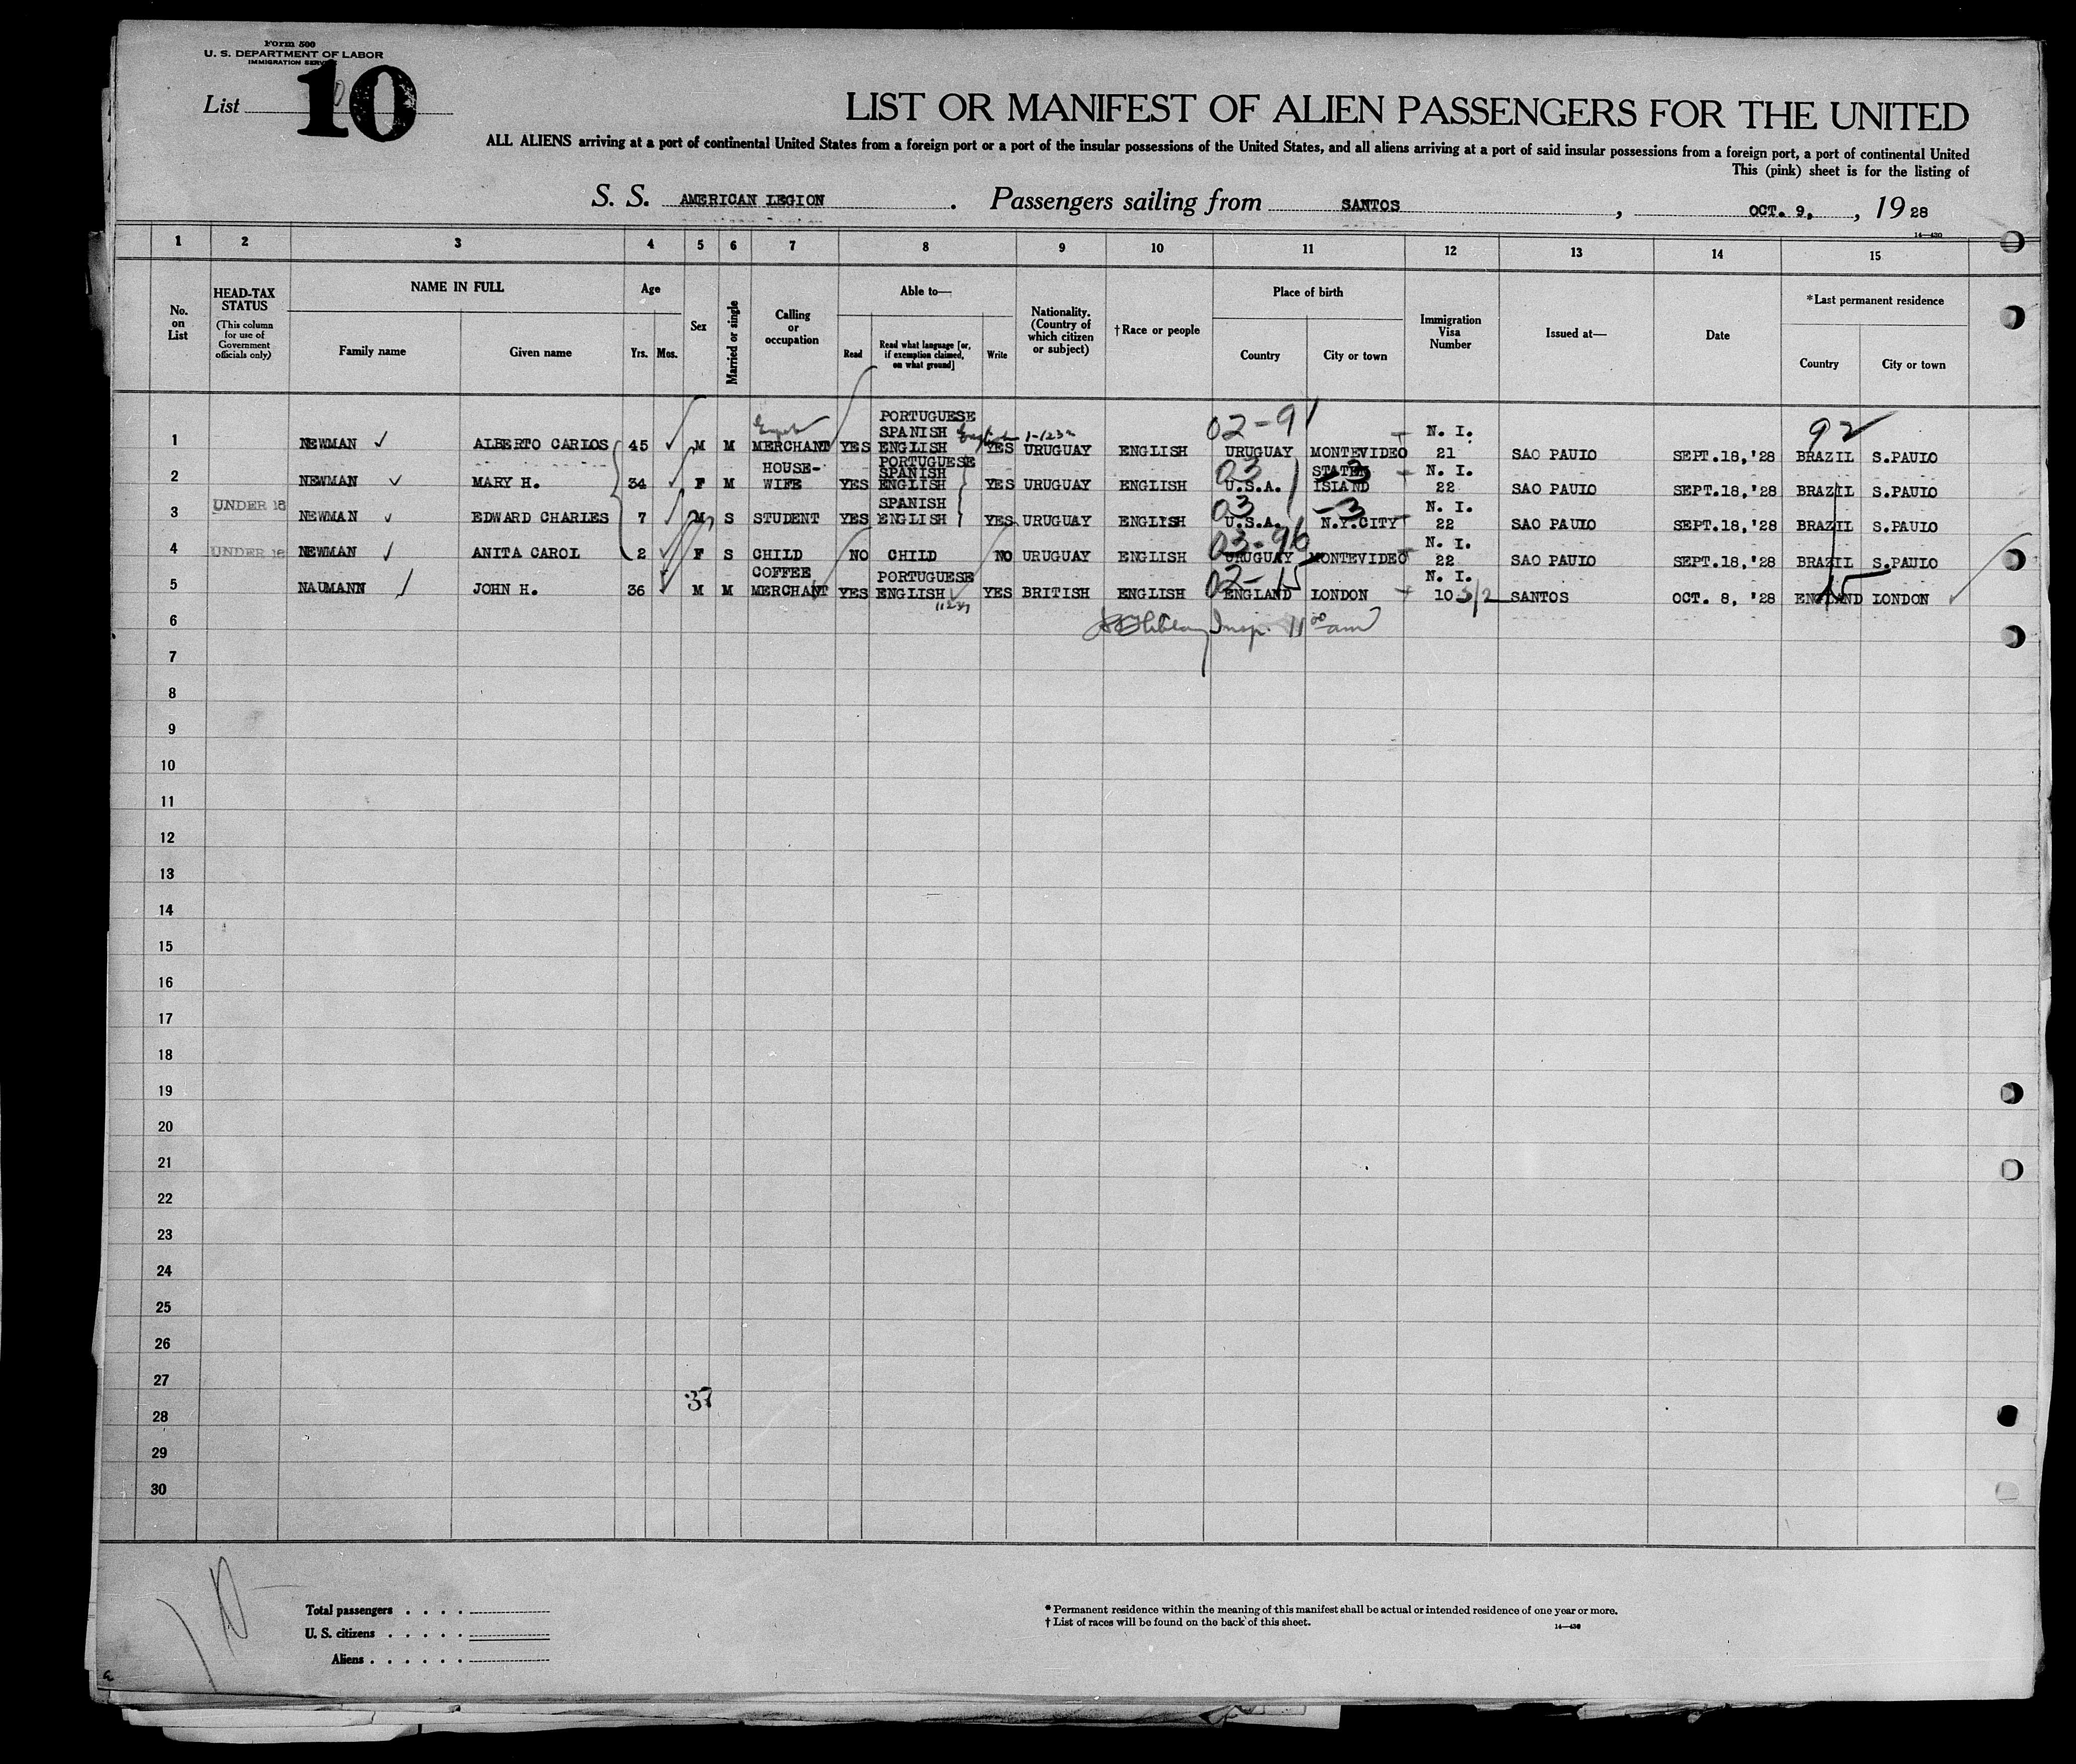 Form 500
U. S. DEPARTMENT OF LABOR
IMMIGRATION SERVICE
List 10
LIST OR MANIFEST OF ALIEN PASSENGERS FOR THE UNITED
ALL ALIENS arriving at a port of continental United States from a foreign port or a port of the insular possessions of the United States, and all aliens arriving at a port of said insular possessions from a foreign port, a port of continental United
This (pink) sheet is for the listing of
S. S. AMERICAN LEGION . Passengers sailing from SANTOS , OCT. 9, , 19 28
14—430
1 2 3 4 5 6 7 8 9 10 11 12 13 14 15
No. on List
HEAD-TAX STATUS (This column for use of Government officials only)
NAME IN FULL
Family name Given name
Age
Yrs. Mos.
Sex
Married or single
Calling or occupation
Able to—
Read Read what language [or, if exemption claimed, on what ground] Write
Nationality. (Country of which citizen or subject)
†Race or people
Place of birth
Country City or town
Immigration Visa Number
Issued at—
Date
*Last permanent residence
Country City or town
02-91 92
1 NEWMAN ALBERTO CARLOS 45 M M MERCHANT YES PORTUGUESE SPANISH ENGLISH English YES URUGUAY ENGLISH URUGUAY MONTEVIDEO N. I. 21 SAO PAULO SEPT.18,'28 BRAZIL S.PAULO
2 NEWMAN MARY H. 34 F M HOUSE-WIFE YES PORTUGUESE SPANISH ENGLISH YES URUGUAY ENGLISH 03 U.S.A. STATEN ISLAND 3 N. I. 22 SAO PAULO SEPT.18,'28 BRAZIL S.PAULO
3 UNDER 16 NEWMAN EDWARD CHARLES 7 M S STUDENT YES SPANISH ENGLISH YES URUGUAY ENGLISH 03 U.S.A. -3 N.Y.CITY N. I. 22 SAO PAULO SEPT.18,'28 BRAZIL S.PAULO
4 UNDER 16 NEWMAN ANITA CAROL 2 F S CHILD NO CHILD NO URUGUAY ENGLISH 03-96 URUGUAY MONTEVIDEO N. I. 22 SAO PAULO SEPT.18,'28 BRAZIL S.PAULO
5 NAUMANN JOHN H. 36 M M COFFEE MERCHANT YES PORTUGUESE ENGLISH YES BRITISH ENGLISH 02-15 ENGLAND LONDON N. I. 10 3/2 SANTOS OCT. 8, '28 ENGLAND 15 LONDON
6 Insp. 11 00 am
7
8
9
10
11
12
13
14
15
16
17
18
19
20
21
22
23
24
25
26
27
37
28
29
30
Total passengers
U. S. citizens
Aliens
* Permanent residence within the meaning of this manifest shall be actual or intended residence of one year or more.
† List of races will be found on the back of this sheet.
14—430